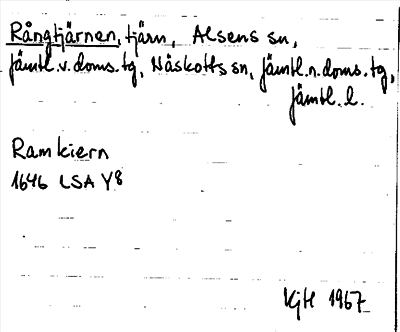 Rångtjärnen, tjärn, Alsens sn,
Jämtl.v.doms.tg, Näskotts sn, Jämtl.n.doms.tg,
Jämtl. l.
Ramkiern
1646 LSA Y8
KjH 1967